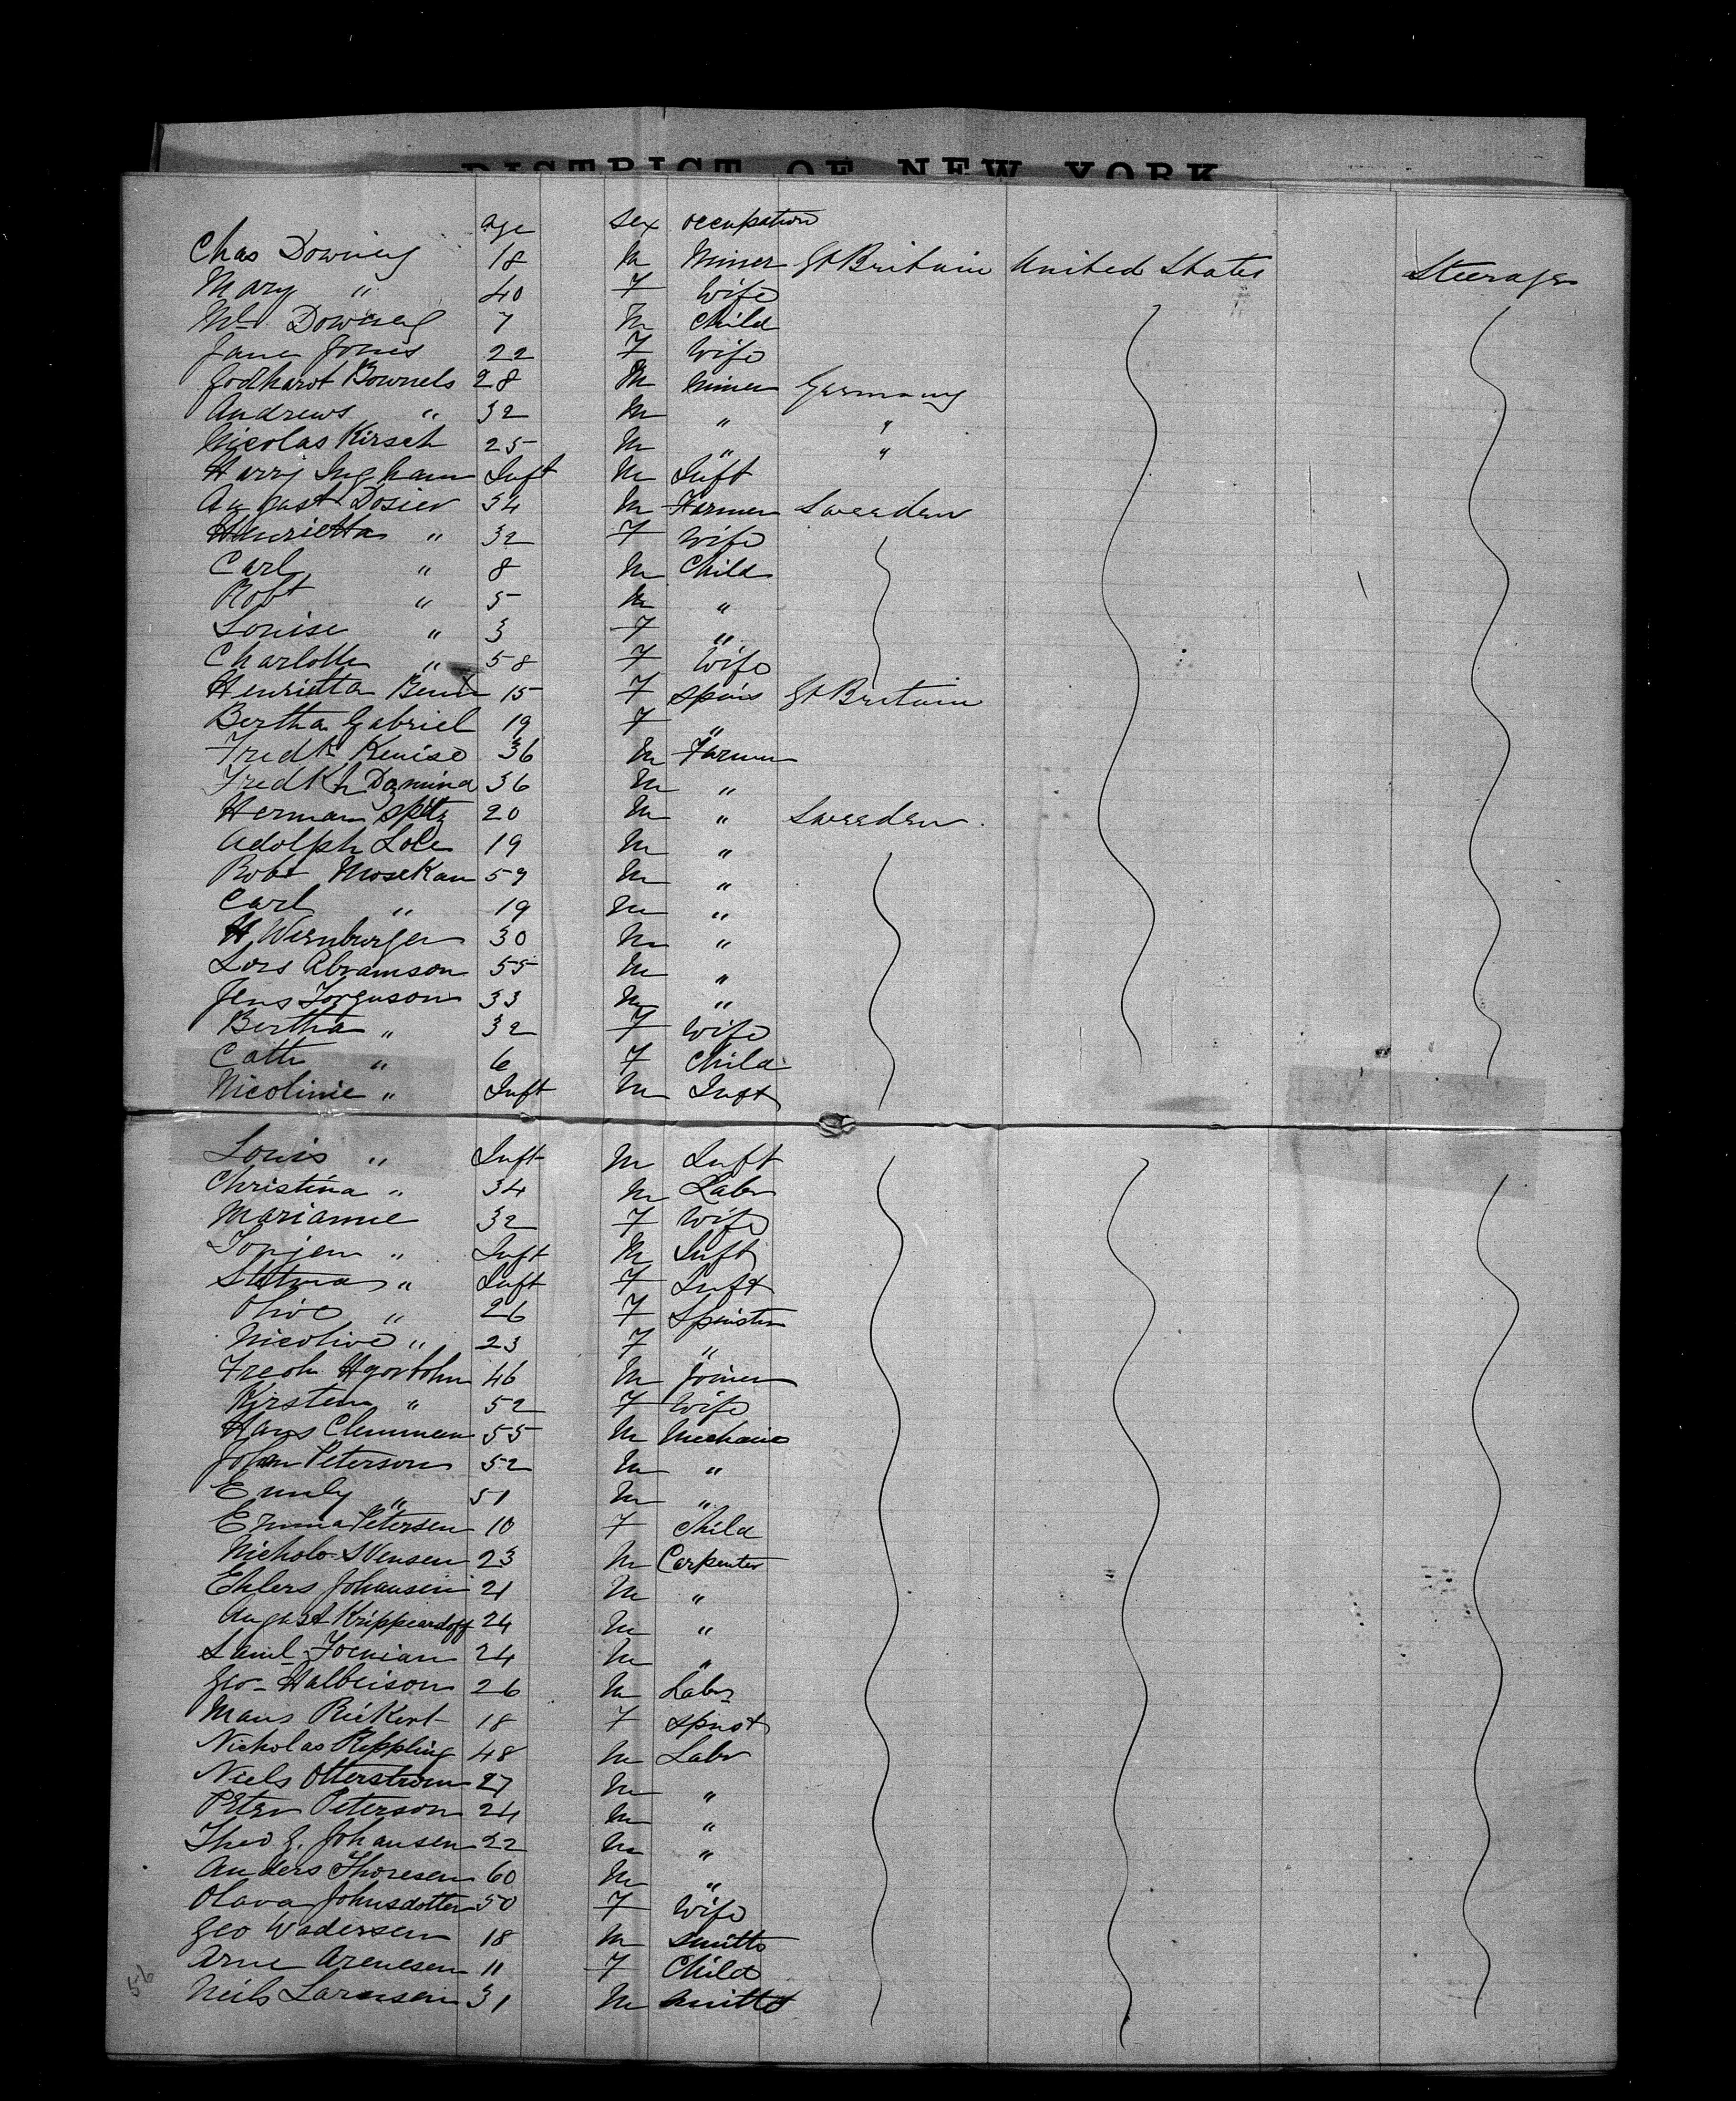 DISTRICT OF NEW YORK
age sex occupation
Chas Downey 18 M Miner Gt Britain United States Steerage
Mary " 40 F Wife
Wm Downey 7 M Child
Jane Jones 22 F Wife
Godhardt Bownels 28 M Miner Germany
Andrews " 32 M " "
Nicolas Kirsch 25 M " "
Harry Ingham Inft M Inft
August Dosier 34 M Farmer Sweeden
Henrietta " 32 F Wife
Carl " 8 M Child
Robt " 5 M "
Louise " 3 F "
Charlotte " 58 F Wife
Henrietta 15 F Spins Gt Britain
Bertha Gabriel 19 F "
Fredk Kenise 36 M Farmer
Fredkh Domina 36 M "
Herman Spitz 20 M " Sweeden
Adolph Lole 19 M "
Robt Mosekan 59 M "
Carl " 19 M "
H Wernburger 30 M "
Lors Abramson 55 M "
Jens Torguson 33 M "
Bertha " 32 F Wife
Cath " 6 F Child
Nicolinie " Inft M Inft
Louis " Inft M Inft
Christina " 34 M Labr
Marianne 32 F Wife
Torjen " Inft M Inft
" Inft F Inft
Olive " 26 F Spinstr
Nicolive " 23 F "
Fredh 46 M Joiner
Kirsten " 52 F Wife
Hans Clemmen 55 M Mechanic
John Peterson 52 M "
Emily " 51 M "
Emma Petersen 10 F Child
Nicholo SVensen 23 M Carpenter
Ehlers Johansen 21 M "
August Krippeardoff 24 M "
Saml 24 M "
Geo Halbeison 26 M Labr
Maus Rickert 18 F Spinst
Nicholas Reppling 48 M Labr
Niels Otterstrom 27 M "
Peter Peterson 24 M "
Theo G. Johansen 22 M "
Anders Thoresen 60 M "
Olava Johnsdotter 50 F Wife
Geo Wadersen 18 M Smith
Arne Arenesen 11 F Child
Neils Larensen 31 M Smith
56